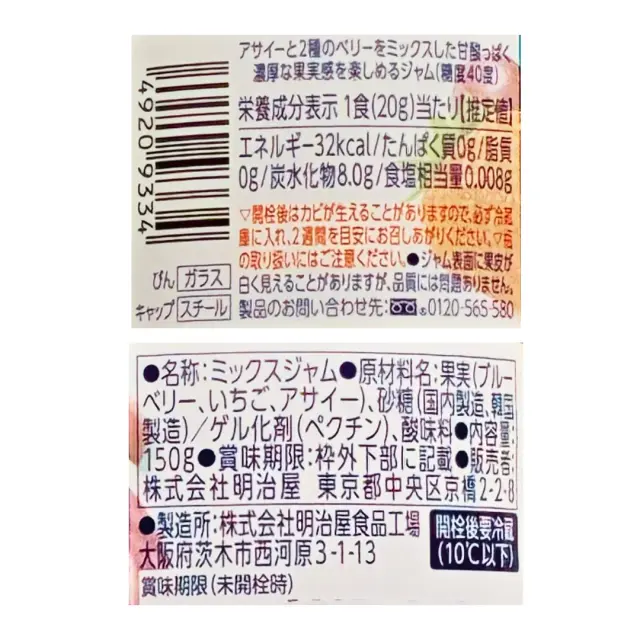 アサイーと2種のベリーをミックスした甘酸っぱく
濃厚な果実感を楽しめるジャム(糖度40度)
栄養成分表示 1食(20g)当たり【推定値】
エネルギー32kcal/たんぱく質0g/脂質
0g/炭水化物8.0g/食塩相当量0.008g
▽開栓後はカビが生えることがありますので、必ず冷蔵
庫に入れ、2週間を目安にお召しあがりください。▽瓶
の取り扱いにはご注意ください。●ジャム表面に果皮が
白く見えることがありますが、品質には問題ありません。
製品のお問い合わせ先:0120-565-580
4920 9334
びん ガラス
キャップ スチール
●名称:ミックスジャム●原材料名:果実(ブルー
ベリー、いちご、アサイー)、砂糖(国内製造、韓国
製造)/ゲル化剤(ペクチン)、酸味料●内容量:
150g●賞味期限:枠外下部に記載●販売者:
株式会社明治屋 東京都中央区京橋2-2-8
●製造所:株式会社明治屋食品工場
大阪府茨木市西河原3-1-13
賞味期限(未開栓時)
開栓後要冷蔵
(10℃以下)